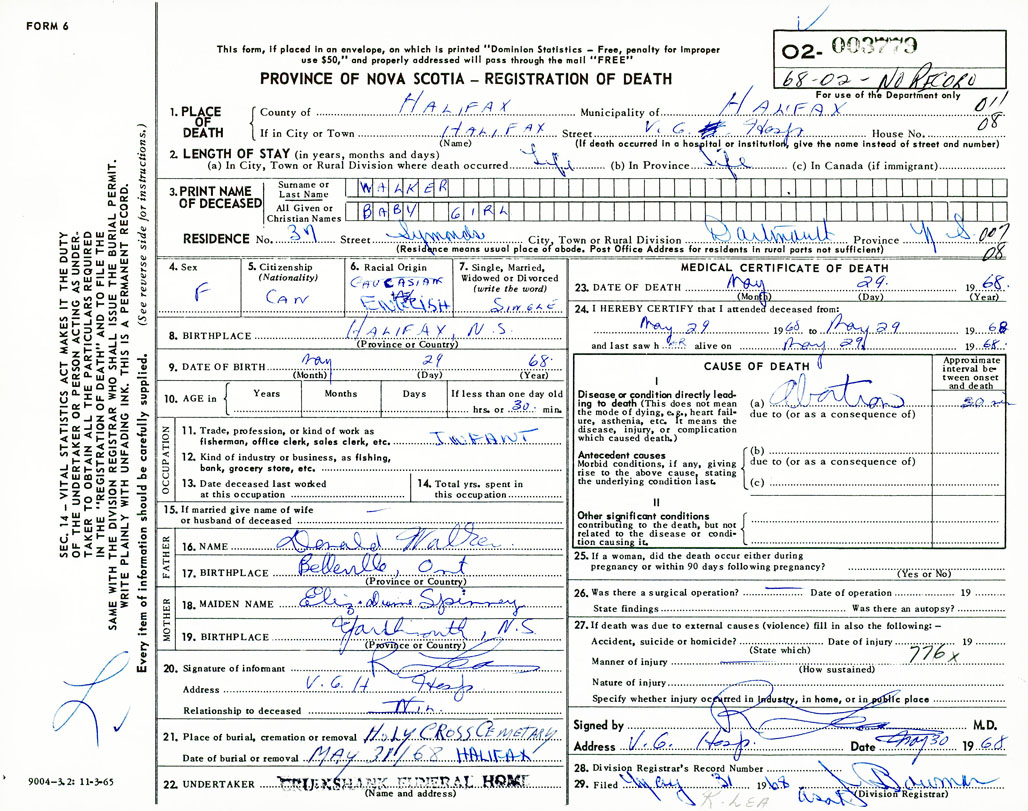 FORM 6
This form, if placed in an envelope, on which is printed "Dominion Statistics – Free, penalty for improper
use $50," and properly addressed will pass through the mail "FREE"
PROVINCE OF NOVA SCOTIA – REGISTRATION OF DEATH
O2- 003779
68-02 - NO RECORD
For use of the Department only
011
08
1. PLACE OF DEATH
County of HALIFAX Municipality of HALIFAX
If in City or Town HALIFAX Street V. G. Hosp House No.
(Name) (If death occurred in a hospital or institution, give the name instead of street and number)
2. LENGTH OF STAY (in years, months and days)
(a) In City, Town or Rural Division where death occurred Life (b) In Province Life (c) In Canada (if immigrant)
3. PRINT NAME OF DECEASED
Surname or Last Name WALKER
All Given or Christian Names BABY GIRL
RESIDENCE No. 37 Street Symonds City, Town or Rural Division Dartmouth Province N S
007
08
(Residence means usual place of abode. Post Office Address for residents in rural parts not sufficient)
4. Sex
F
5. Citizenship
(Nationality)
CAN
6. Racial Origin
CAUCASIAN
ENGLISH
7. Single, Married,
Widowed or Divorced
(write the word)
SINGLE
8. BIRTHPLACE HALIFAX, N.S.
(Province or Country)
9. DATE OF BIRTH May 29 68
(Month) (Day) (Year)
10. AGE in Years Months Days If less than one day old
hrs. or 30 min.
OCCUPATION
11. Trade, profession, or kind of work as
fisherman, office clerk, sales clerk, etc. INFANT
12. Kind of industry or business, as fishing,
bank, grocery store, etc.
13. Date deceased last worked
at this occupation
14. Total yrs. spent in
this occupation
15. If married give name of wife
or husband of deceased —
FATHER
16. NAME Donald Walker
17. BIRTHPLACE Belleville, Ont
(Province or Country)
MOTHER
18. MAIDEN NAME Eliz. Diane Spinney
19. BIRTHPLACE Yarmouth, N.S.
(Province or Country)
20. Signature of informant R Lea
Address V. G. H Hosp.
Relationship to deceased Nil
21. Place of burial, cremation or removal HOLY CROSS CEMETARY
Date of burial or removal MAY 31/68 HALIFAX
22. UNDERTAKER CRUIKSHANK FUNERAL HOME
(Name and address)
MEDICAL CERTIFICATE OF DEATH
23. DATE OF DEATH May 29 1968
(Month) (Day) (Year)
24. I HEREBY CERTIFY that I attended deceased from:
May 29 1968 to May 29 1968
and last saw her alive on May 29 1968
CAUSE OF DEATH
Approximate
interval be-
tween onset
and death
I
Disease or condition directly lead-
ing to death (This does not mean
the mode of dying, e.g., heart fail-
ure, asthenia, etc. It means the
disease, injury, or complication
which caused death.)
(a) Abortion 30 min
due to (or as a consequence of)
Antecedent causes
Morbid conditions, if any, giving
rise to the above cause, stating
the underlying condition last.
(b)
due to (or as a consequence of)
(c)
II
Other significant conditions
contributing to the death, but not
related to the disease or condi-
tion causing it.
25. If a woman, did the death occur either during
pregnancy or within 90 days following pregnancy?
(Yes or No)
26. Was there a surgical operation? — Date of operation 19
State findings Was there an autopsy?
27. If death was due to external causes (violence) fill in also the following:–
Accident, suicide or homicide? Date of injury 19
(State which)
776X
Manner of injury
(How sustained)
Nature of injury
Specify whether injury occurred in industry, in home, or in public place
Signed by R Lea M.D.
Address V. G. Hosp. Date 30 1968
28. Division Registrar's Record Number
29. Filed May 31 1968
(Division Registrar)
R. LEA
SEC. 14 – VITAL STATISTICS ACT MAKES IT THE DUTY
OF THE UNDERTAKER OR PERSON ACTING AS UNDER-
TAKER TO OBTAIN ALL THE PARTICULARS REQUIRED
IN THE "REGISTRATION OF DEATH" AND TO FILE THE
SAME WITH THE DIVISION REGISTRAR WHO SHALL ISSUE THE BURIAL PERMIT.
WRITE PLAINLY WITH UNFADING INK. THIS IS A PERMANENT RECORD.
Every item of information should be carefully supplied. (See reverse side for instructions.)
9004-3.2: 11-3-65